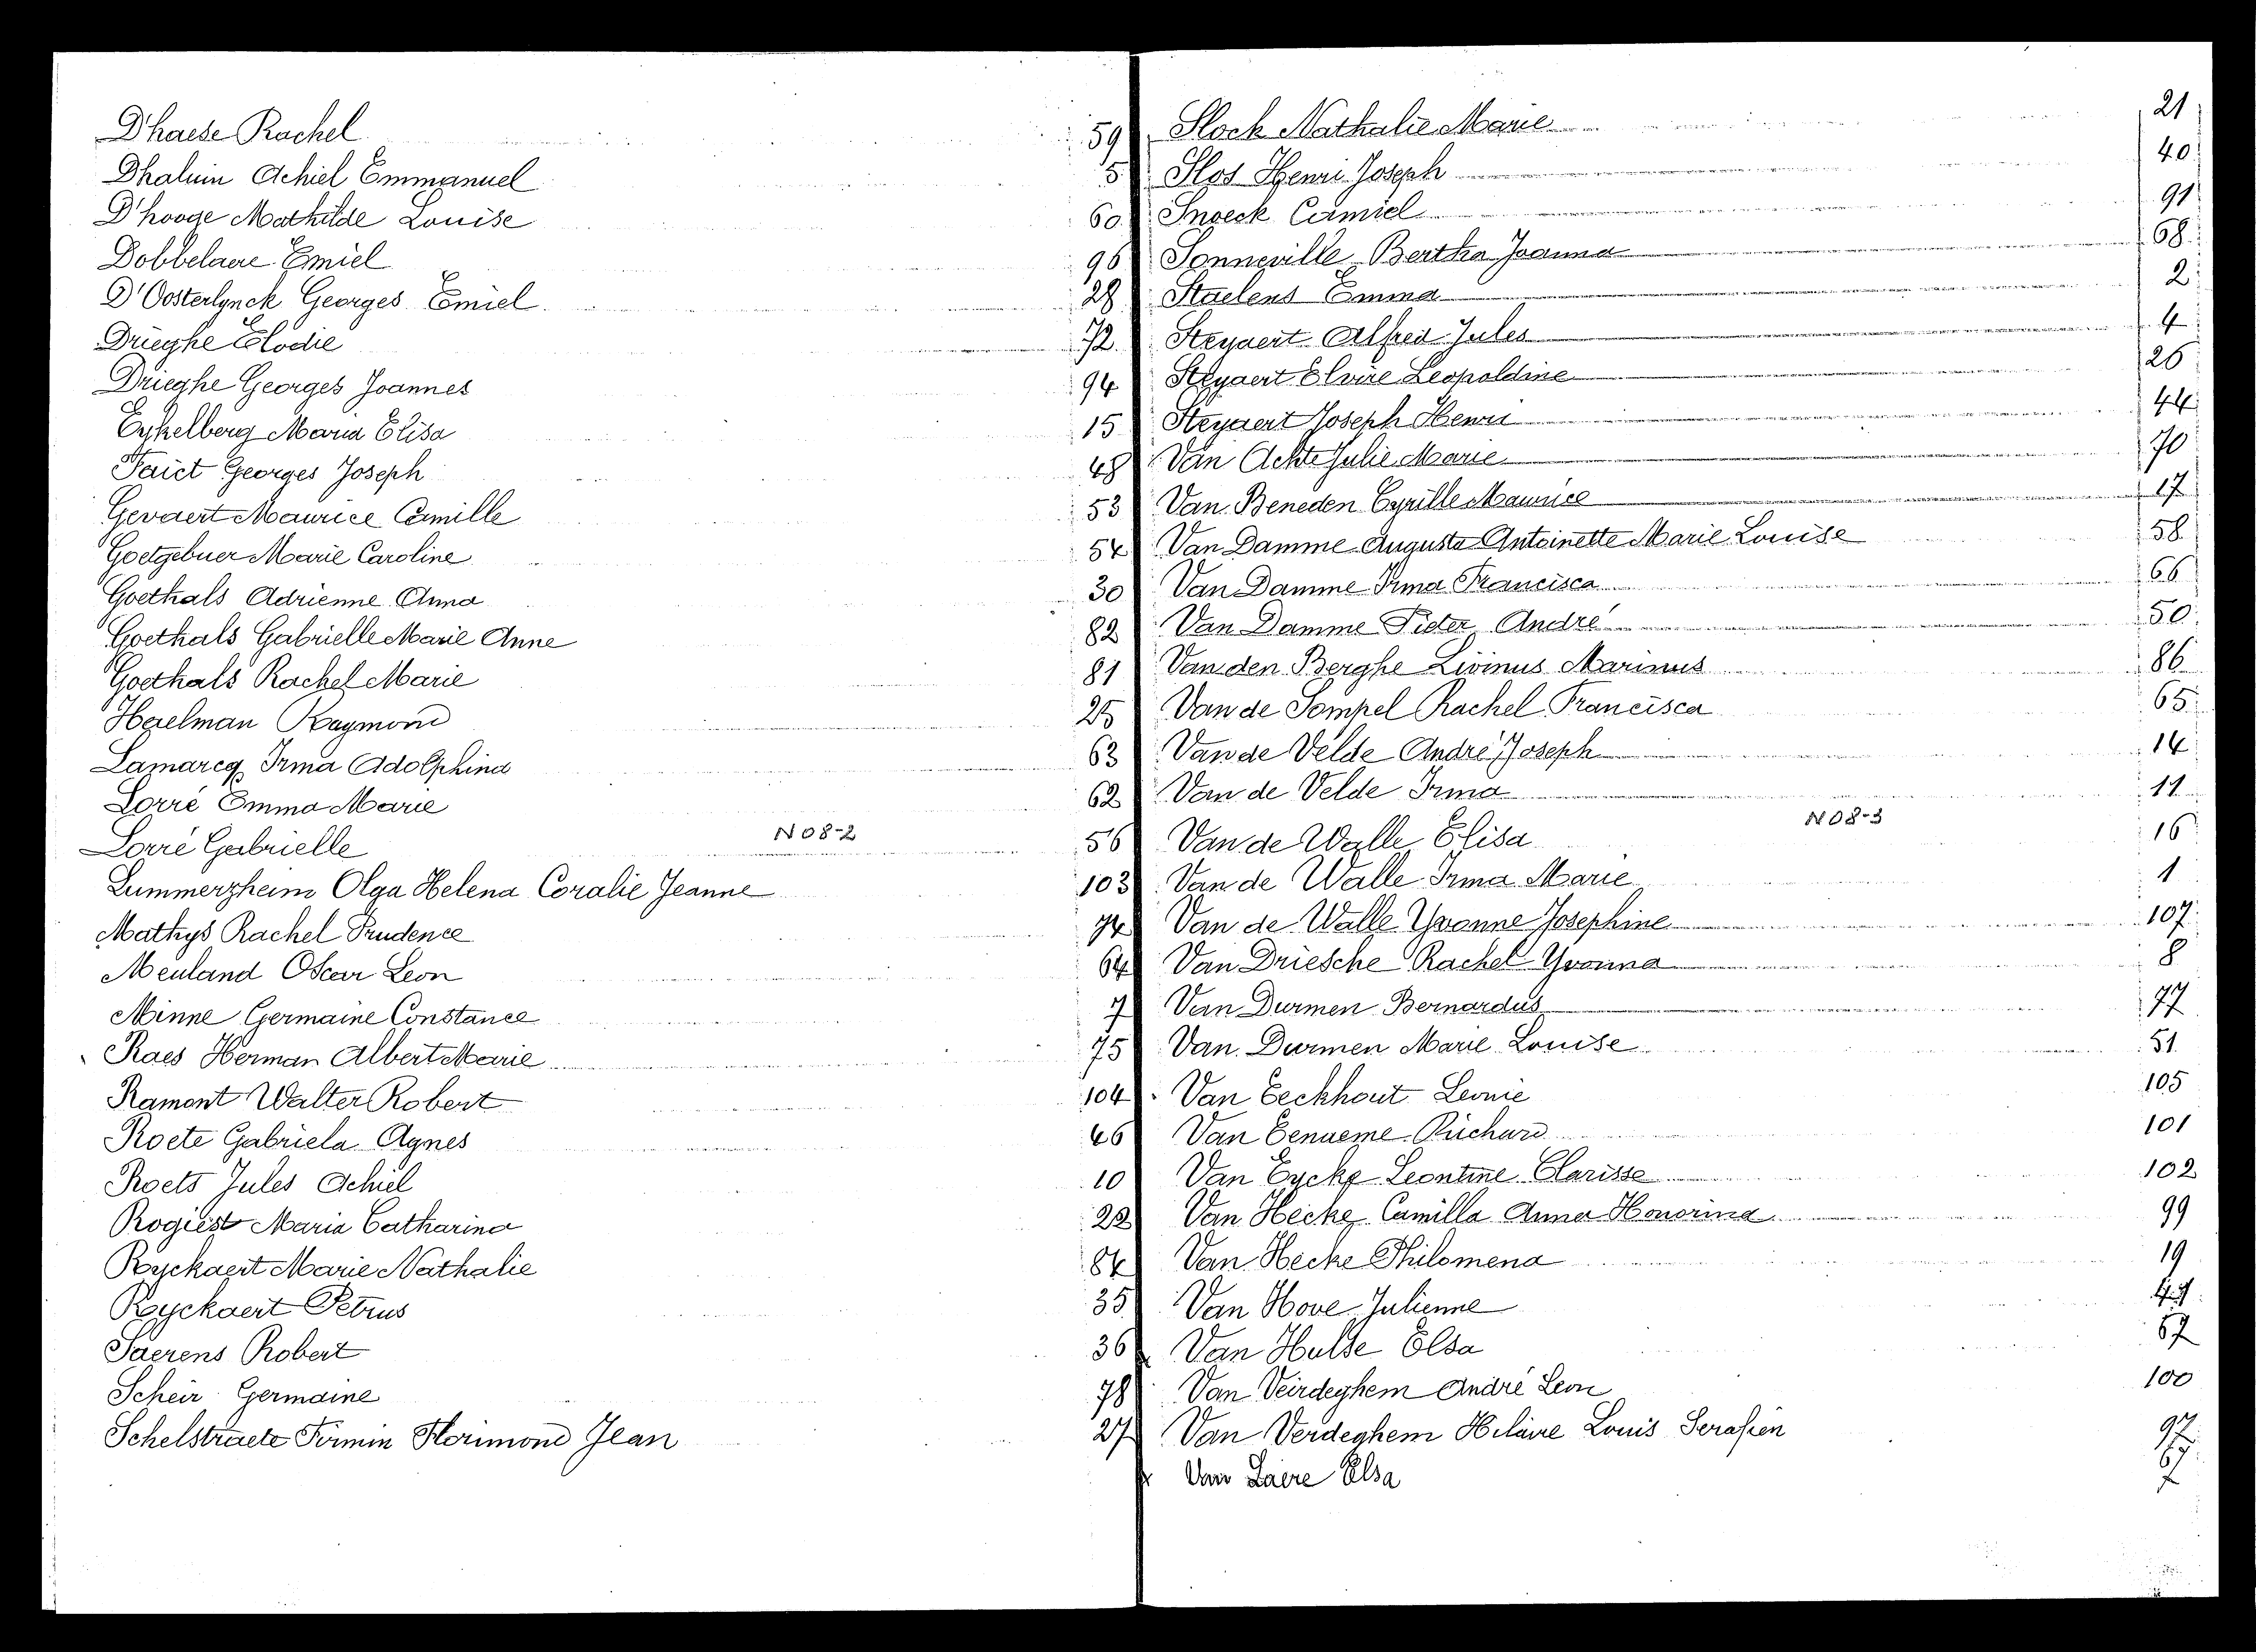 Dhaese Rachel 59
Dhaluin Achiel Emmanuel 5
D'hooge Mathilde Louise 60
Dobbelaere Emiel 96
D'Oosterlynck Georges Emiel 28
Drieghe Elodie 72
Drieghe Georges Joannes 94
Eykelberg Maria Elisa 15
Faict Georges Joseph 48
Gevaert Maurice Camille 53
Goetgebuer Marie Caroline 54
Goethals Adrienne Anna 30
Goethals Gabrielle Marie Anne 82
Goethals Rachel Marie 81
Haelman Raymond 25
Lamarcq Irma Adolphina 63
Lorré Emma Marie 62
Lorré Gabrielle 56
N08-2
Lummerzheim Olga Helena Coralie Jeanne 103
Mathys Rachel Prudence 74
Meuland Oscar Leon 64
Minne Germaine Constance 7
Raes Herman Albert Marie 75
Ramont Walter Robert 104
Roete Gabriela Agnes 46
Roets Jules Achiel 10
Rogiest Maria Catharina 22
Ryckaert Marie Nathalie 84
Ryckaert Petrus 35
Saerens Robert 36
Scheir Germaine 78
Schelstraete Firmin Florimond Jean 27
Slock Nathalie Marie 21
Slos Henri Joseph 40
Snoeck Camiel 91
Sonneville Bertha Joanna 68
Staelens Emma 2
Steyaert Alfred Jules 4
Steyaert Elvire Leopoldine 26
Steyaert Joseph Henri 44
Van Achte Julie Marie 70
Van Beneden Cyrille Maurice 17
Van Damme Augusta Antoinette Marie Louise 58
Van Damme Irma Francisca 66
Van Damme Pieter André 50
Van den Berghe Livinus Marinus 86
Van de Sompel Rachel Francisca 65
Van de Velde André Joseph 14
Van de Velde Irma 11
N08-3
Van de Walle Elisa 16
Van de Walle Irma Marie 1
Van de Walle Yvonne Josephine 107
Van Driesche Rachel Yvonna 8
Van Durmen Bernardus 77
Van Durmen Marie Louise 51
Van Eeckhout Leonie 105
Van Eenaeme Richard 101
Van Eycke Leontine Clarisse 102
Van Hecke Camilla Anna Honorina 99
Van Hecke Philomena 19
Van Hove Julienne
Van Hulse Elsa 67
Van Veirdeghem André Leon 100
Van Verdeghem Hilaire Louis Serafien 97
Van Laere Elsa 67